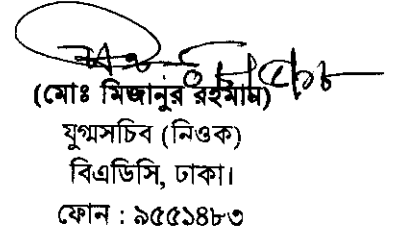 (মোঃ মিজানুর রহমান)
যুগ্মসচিব (নিওক)
বিএডিসি, ঢাকা।
ফোন : ৯৫৫১৪৮৩